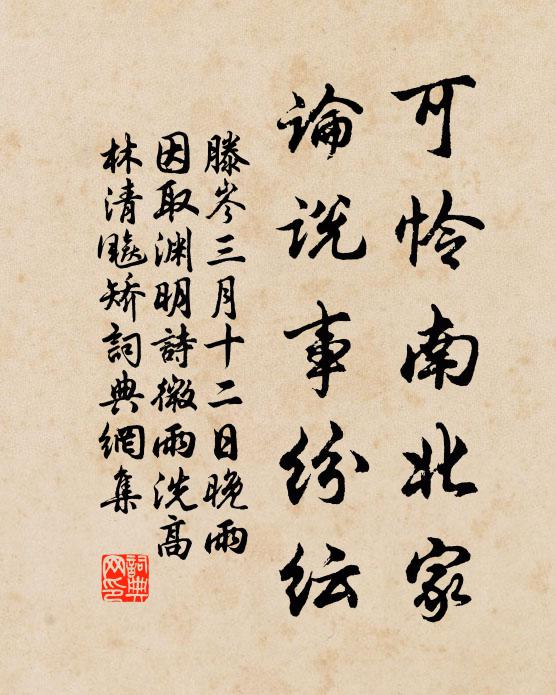 可怜南北家
論説事紛紜
滕岑三月十二日晚雨
因取渊明詩微雨洗高
林清飈矫詞典網集
詞典网印